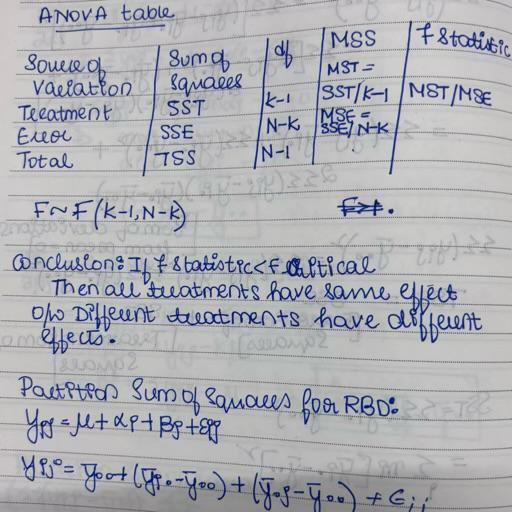 ANOVA table
Source of Variation | Sum of Squares | df | MSS | f Statistic
Treatment | SST | k-1 | MST = SST/k-1 | MST/MSE
Error | SSE | N-k | MSE = SSE/N-k
Total | TSS | N-1
F~F(k-1, N-k)
Conclusion: If f statistic < f critical
Then all treatments have same effect
o/w Different treatments have different
effects.
Partition Sum of Squares for RBD:
yij = μ + αi + βj + εij
yij = ȳ00 + (ȳi0 - ȳ00) + (ȳ0j - ȳ00) + ϵij